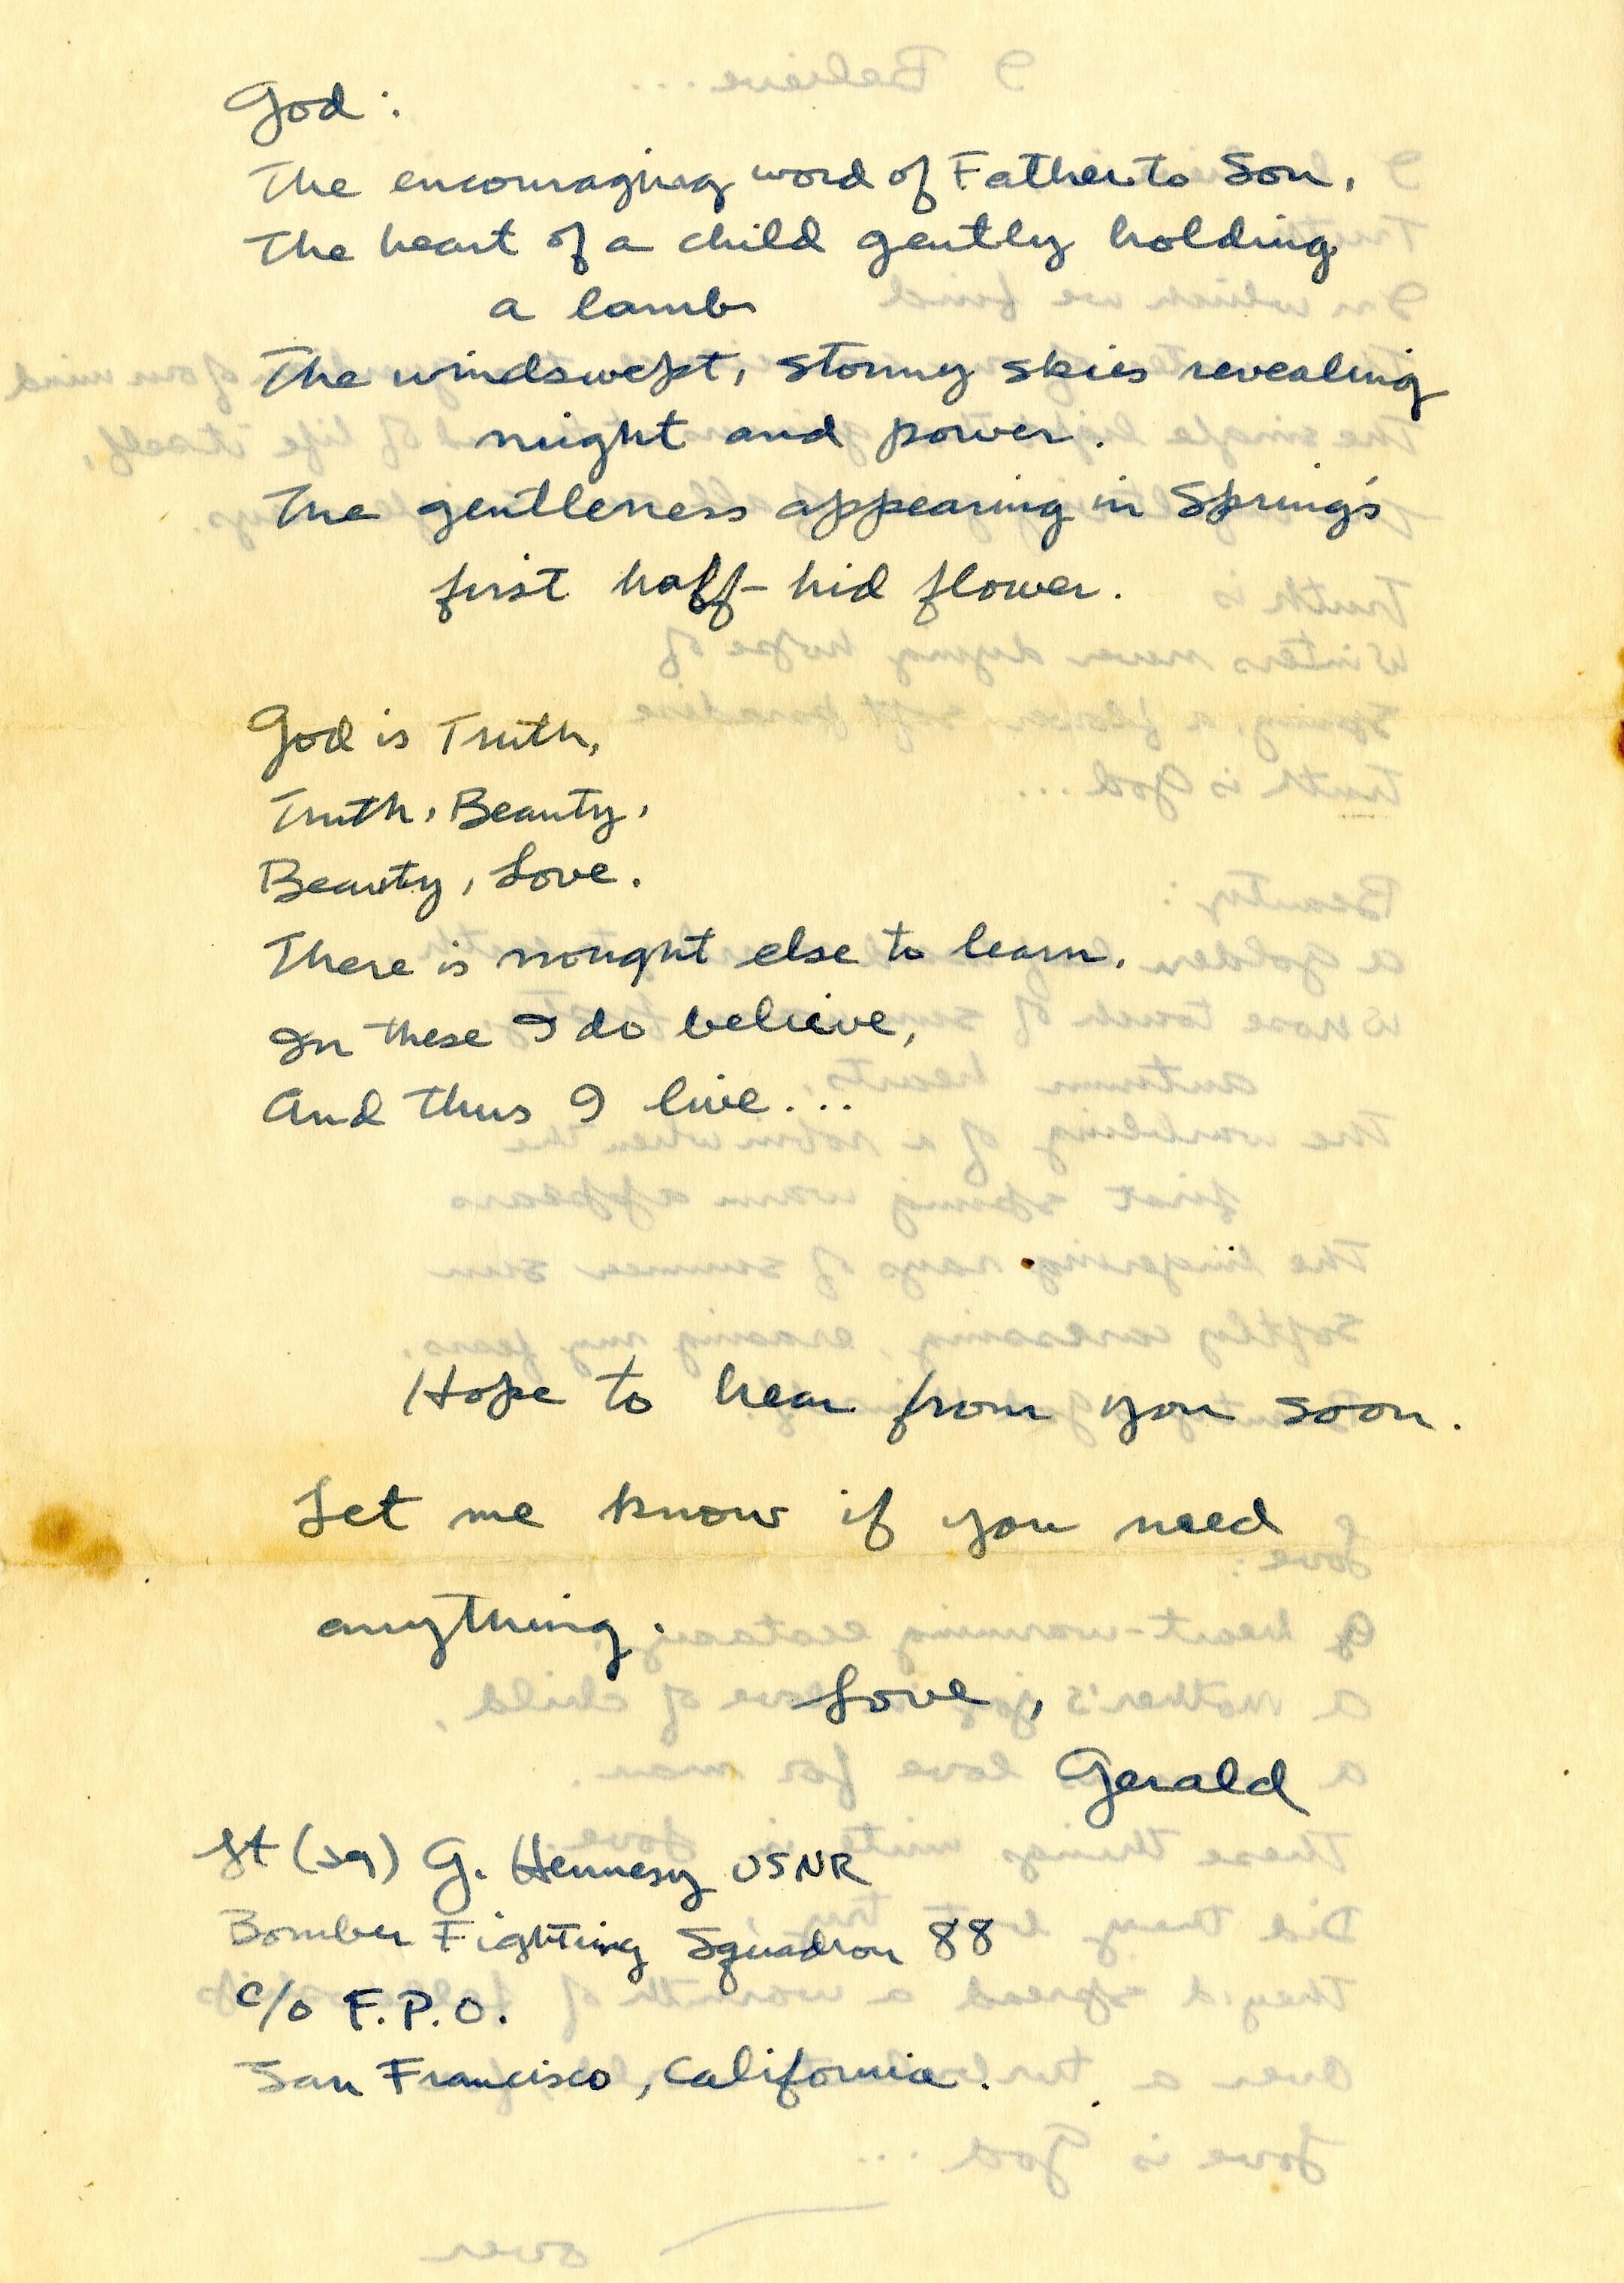 God:
The encouraging word of Father to Son,
The heart of a child gently holding
a lamb
The windswept, stormy skies revealing
might and power.
The gentleness appearing in Spring's
first half-hid flower.
God is Truth,
Truth, Beauty,
Beauty, Love.
There is nought else to learn.
In these I do believe,
And thus I live...
Hope to hear from you soon.
Let me know if you need
anything.
Love,
Gerald
Lt (jg) G. Hennesy USNR
Bomber Fighting Squadron 88
c/o F.P.O.
San Francisco, California.